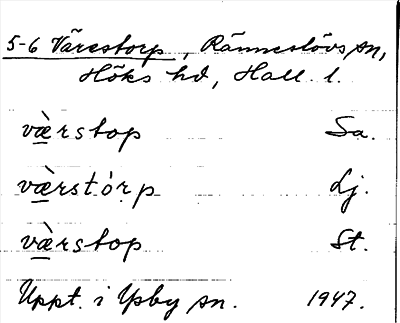 5-6 Värestorp, Ränneslövs sn,
Höks hd, Hall. l.
væ̀rstop Sa.
væ̀rstórp Lj.
væ̀rstop St.
Uppt. i Ysby sn. 1947.